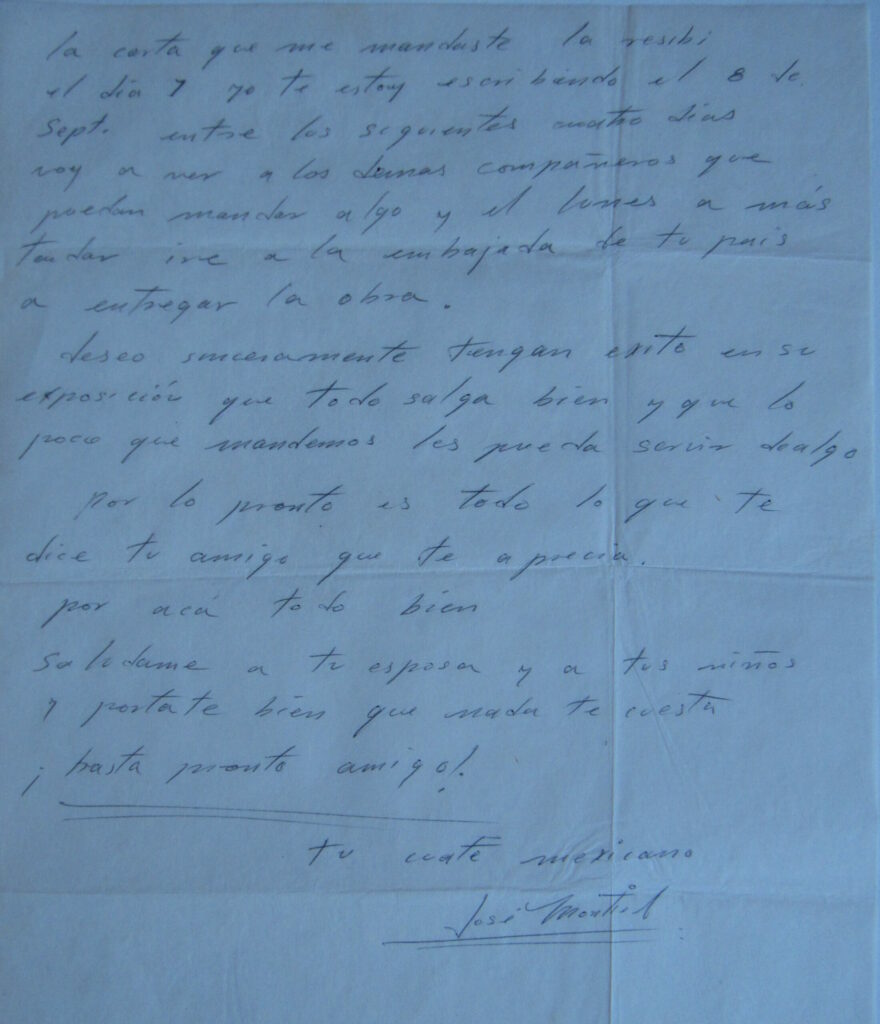 la carta que me mandaste la resibi
el día 7 yo te estoy escribiendo el 8 de
Sept. entre los siguientes cuatro días
voy a ver a los demas compañeros que
puedan mandar algo y el lunes a más
tardar ire a la embajada de tu pais
a entregar la obra.
deseo sinceramente tengan exito en su
exposición que todo salga bien y que lo
poco que mandemos les pueda servir de algo
por lo pronto es todo lo que te
dice tu amigo que te aprecia.
por acá todo bien
Saludame a tu esposa y a tus niños
y portate bien que nada te cuesta
¡hasta pronto amigo!
tu cuate mexicano
José Montiel